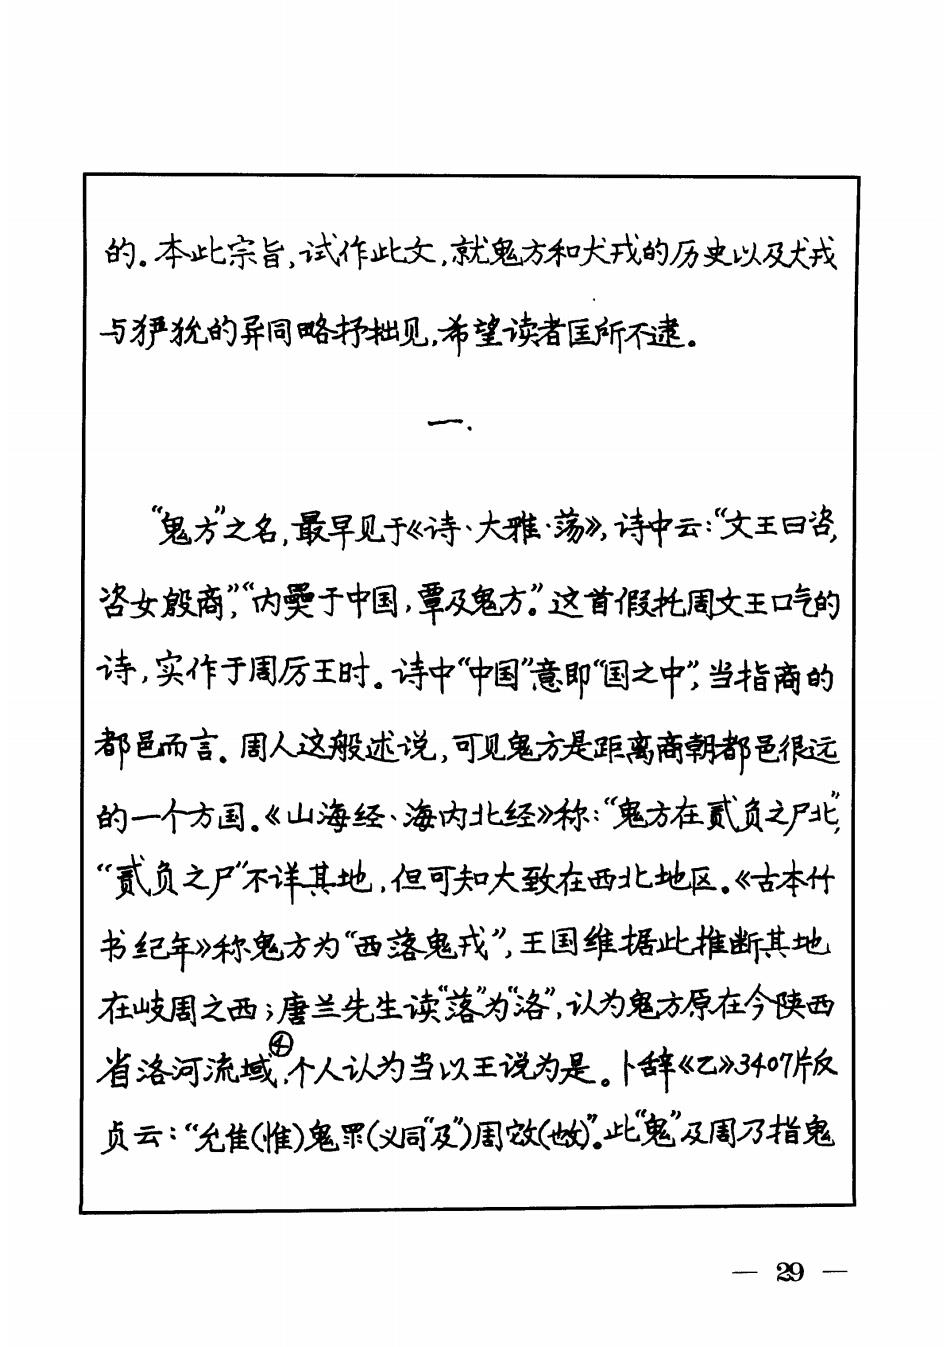 的。本此宗旨,试作此文,就鬼方和犬戎的历史以及犬戎
与猃狁的异同略抒拙见,希望读者匡所不逮。
一.
“鬼方”之名,最早见于《诗·大雅·荡》,诗中云:“文王曰咨,
咨女殷商”,“内奰于中国,覃及鬼方”。这首假托周文王口气的
诗,实作于周厉王时。诗中“中国”意即“国之中”,当指商的
都邑而言。周人这般述说,可见鬼方是距离商朝都邑很远
的一个方国。《山海经·海内北经》称:“鬼方在贰负之尸北”,
“贰负之尸”不详其地,但可知大致在西北地区。《古本竹
书纪年》称鬼方为“西落鬼戎”,王国维据此推断其地
在岐周之西;唐兰先生读“落”为“洛”,认为鬼方原在今陕西
省洛河流域④,个人认为当以王说为是。卜辞《乙》3407片反
贞云:“允隹(惟)鬼眔(义同“及”)周𢦚(㦳)”。此“鬼”及周乃指鬼
— 29 —